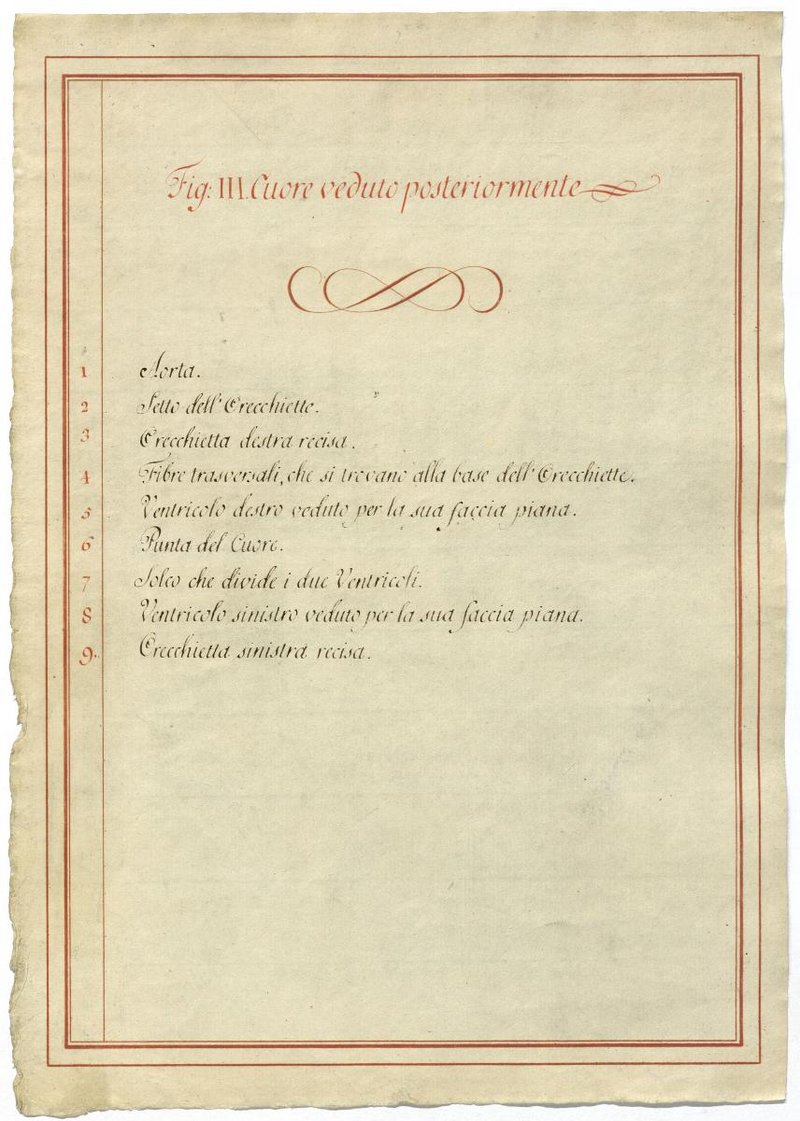 Fig: III. Cuore veduto posteriormente
1 Aorta.
2 Setto dell' Orecchiette.
3 Orecchietta destra recisa.
4 Fibre trasversali, che si trovano alla base dell' Orecchiette.
5 Ventricolo destro veduto per la sua faccia piana.
6 Punta del Cuore.
7 Solco che divide i due Ventricoli.
8 Ventricolo sinistro veduto per la sua faccia piana.
9. Orecchietta sinistra recisa.